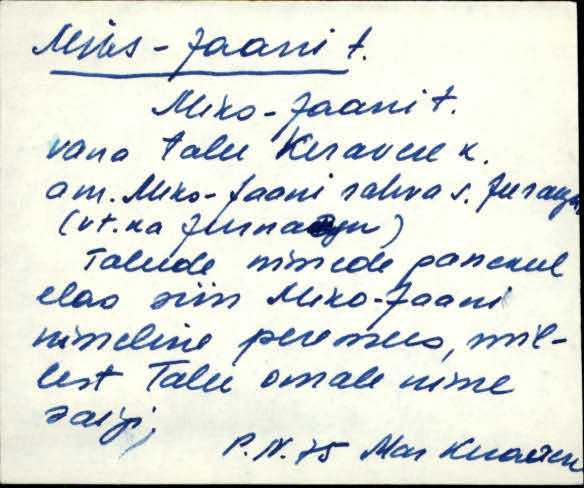 Miks-Jaani t.
Miko-Jaani t.
vana talu Keravere k.
a m. Miko-Jaani rahva s.
(vt. ka
Talude nimede panekul
elas siin Miko-Jaani
nimeline peremees, mil-
lest Talu omale nime
saigi,
P. N. 75 Mar